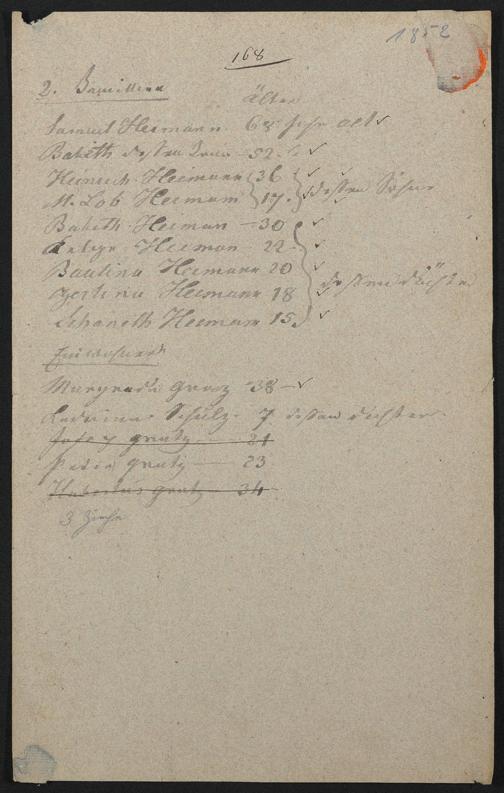 1852
168
2. Familien
Älter
Samuel Heimann 68 Jahr alt
Babeth dessen Frau - 52.
Heinrich Heimann 36
M. Lob Heimann 17. dessen Söhne
Babeth Heiman - 30
Heiman - 22
Bautina Heimann 20
Heimann 18 dessen döchter
Schaneth Heimann 15.
Einwohner
Gratz - 38 -
Schülz 7 dessen dochter
Josep gratz 21
Peder gratz - 23
Hubertus gratz - 34
3 Ziege